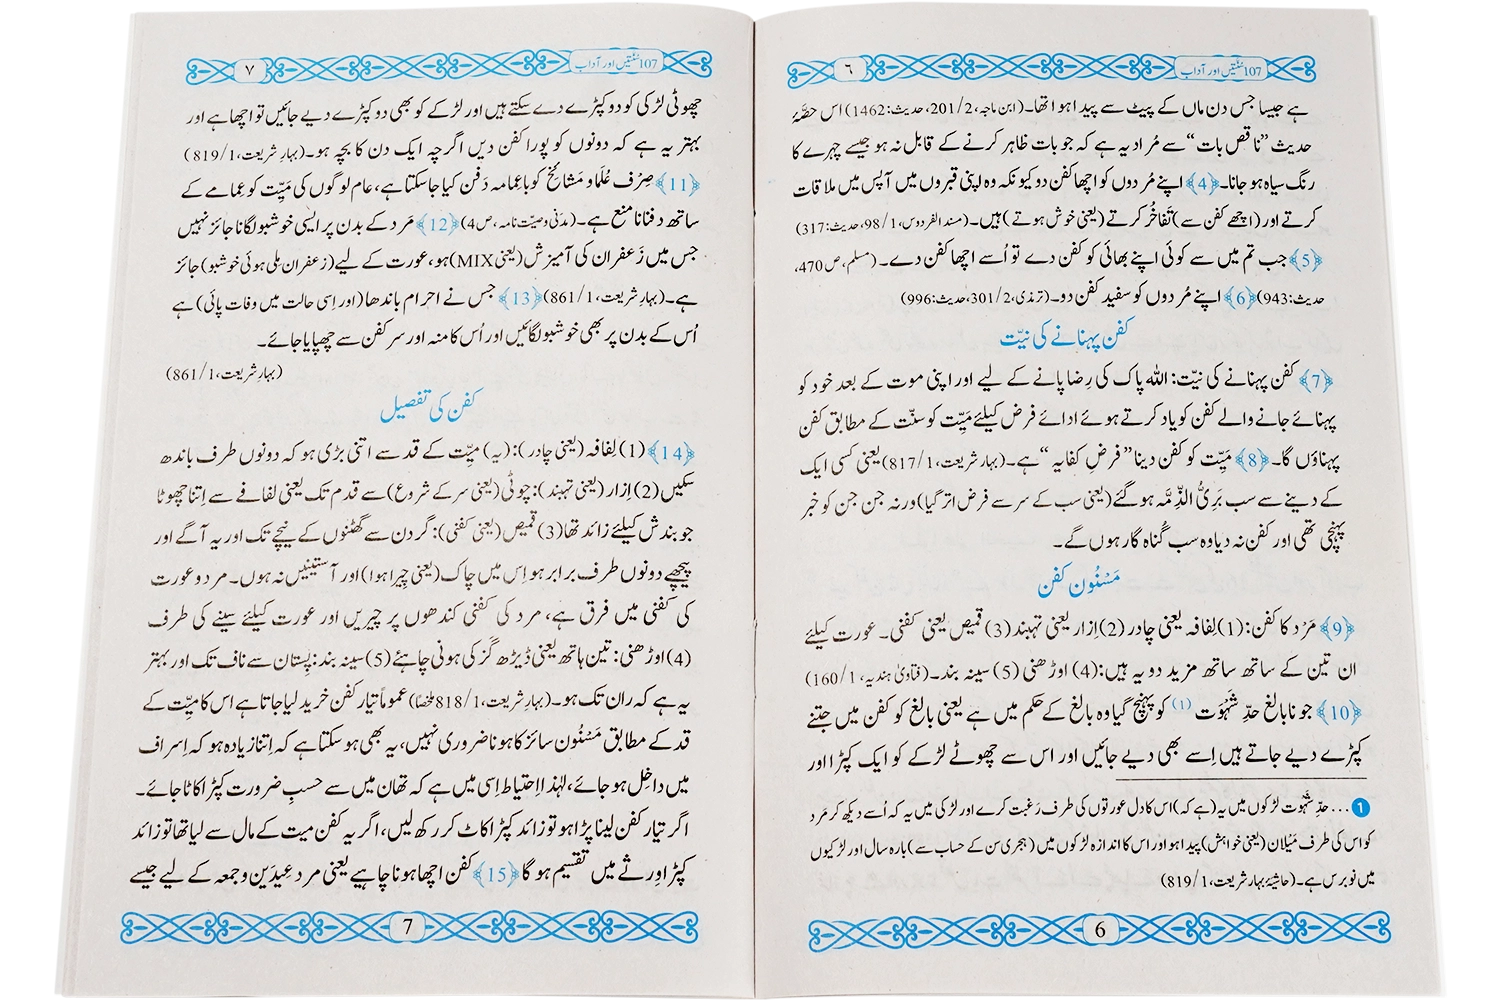 107 سنتیں اور آداب
٦
ہے جیسا جس دن ماں کے پیٹ سے پیدا ہوا تھا۔ (ابن ماجہ، 201/2، حدیث:1462) اس حصّۂ
حدیث ”ناقص بات“ سے مُراد یہ ہے کہ جو بات ظاہر کرنے کے قابل نہ ہو جیسے چہرے کا
رنگ سیاہ ہو جانا۔ ﴿4﴾ اپنے مُردوں کو اچھا کفن دو کیونکہ وہ اپنی قبروں میں آپس میں ملاقات
کرتے اور (اچھے کفن سے) تفاخُر کرتے (یعنی خوش ہوتے) ہیں۔ (مسند الفردوس، 98/1، حدیث:317)
﴿5﴾ جب تم میں سے کوئی اپنے بھائی کو کفن دے تو اُسے اچھا کفن دے۔ (مسلم، ص470،
حدیث:943) ﴿6﴾ اپنے مُردوں کو سفید کفن دو۔ (ترمذی، 301/2، حدیث:996)
کفن پہنانے کی نیّت
﴿7﴾ کفن پہنانے کی نیّت: اللہ پاک کی رِضا پانے کے لیے اور اپنی موت کے بعد خود کو
پہنائے جانے والے کفن کو یاد کرتے ہوئے ادائے فرض کیلئے مَیِّت کو سنّت کے مطابق کفن
پہناؤں گا۔ ﴿8﴾ مَیِّت کو کفن دینا ”فرضِ کفایہ“ ہے۔ (بہارِ شریعت، 817/1) یعنی کسی ایک
کے دینے سے سب بَرِیُّ الذِّمَّہ ہو گئے (یعنی سب کے سر سے فرض اتر گیا) ورنہ جن جن کو خبر
پہنچی تھی اور کفن نہ دیا وہ سب گُناہ گار ہوں گے۔
مَسْنُون کفن
﴿9﴾ مَرْد کا کفن: (1) لِفافہ یعنی چادر (2) اِزار یعنی تہبند (3) قمیص یعنی کفنی۔ عورت کیلئے
ان تین کے ساتھ ساتھ مزید دو یہ ہیں: (4) اوڑھنی (5) سینہ بند۔ (فتاویٰ ہندیہ، 160/1)
﴿10﴾ جو نابالغ حدِّ شَہْوَت (1) کو پہنچ گیا وہ بالغ کے حکم میں ہے یعنی بالغ کو کفن میں جتنے
کپڑے دیے جاتے ہیں اِسے بھی دیے جائیں اور اس سے چھوٹے لڑکے کو ایک کپڑا اور
1 ... حدِّ شَہْوَت لڑکوں میں یہ (ہے کہ) اس کا دل عورتوں کی طرف رَغبت کرے اور لڑکی میں یہ کہ اُسے دیکھ کر مَرد
کو اس کی طرف مَیلان (یعنی خواہش) پیدا ہو اور اس کا اندازہ لڑکوں میں (ہجری سن کے حساب سے) بارہ سال اور لڑکیوں
میں نو برس ہے۔ (حاشیۂ بہارِ شریعت، 819/1)
6
107 سنتیں اور آداب
٧
چھوٹی لڑکی کو دو کپڑے دے سکتے ہیں اور لڑکے کو بھی دو کپڑے دیے جائیں تو اچھا ہے اور
بہتر یہ ہے کہ دونوں کو پورا کفن دیں اگرچہ ایک دن کا بچہ ہو۔ (بہارِ شریعت، 819/1)
﴿11﴾ صِرْف عُلَما و مَشائخ کو باعِمامہ دَفن کیا جا سکتا ہے، عام لوگوں کی مَیِّت کو عِمامے کے
ساتھ دفنانا منع ہے۔ (مدنی وصیت نامہ، ص4) ﴿12﴾ مَرد کے بدن پر ایسی خوشبو لگانا جائز نہیں
جس میں زَعفران کی آمیزش (یعنی MIX) ہو، عورت کے لیے (زعفران مِلی ہوئی خوشبو) جائز
ہے۔ (بہارِ شریعت، 861/1) ﴿13﴾ جس نے احرام باندھا (اور اِسی حالت میں وفات پائی) ہے
اُس کے بدن پر بھی خوشبو لگائیں اور اُس کا منہ اور سر کفن سے چھپایا جائے۔
(بہارِ شریعت، 861/1)
کفن کی تفصیل
﴿14﴾ (1) لِفافہ (یعنی چادر): (یہ) میِّت کے قد سے اتنی بڑی ہو کہ دونوں طرف باندھ
سکیں (2) اِزار (یعنی تہبند): چوٹی (یعنی سر کے شروع) سے قدم تک یعنی لفافے سے اِتنا چھوٹا
جو بندش کیلئے زائد تھا (3) قمیص (یعنی کفنی): گردن سے گھٹنوں کے نیچے تک اور یہ آگے اور
پیچھے دونوں طرف برابر ہو اِس میں چاک (یعنی چیرا ہوا) اور آستینیں نہ ہوں۔ مرد و عورت
کی کفنی میں فرق ہے، مرد کی کفنی کندھوں پر چیریں اور عورت کیلئے سینے کی طرف
(4) اوڑھنی: تین ہاتھ یعنی ڈیڑھ گز کی ہونی چاہئے (5) سینہ بند: پِستان سے ناف تک اور بہتر
یہ ہے کہ ران تک ہو۔ (بہارِ شریعت، 818/1 ملخصاً) عموماً تیار کفن خرید لیا جاتا ہے اس کا میِّت کے
قد کے مطابق مَسْنُون سائز کا ہونا ضروری نہیں، یہ بھی ہو سکتا ہے کہ اِتنا زیادہ ہو کہ اِسراف
میں داخِل ہو جائے، لہٰذا اِحتیاط اِسی میں ہے کہ تھان میں سے حسبِ ضرورت کپڑا کاٹا جائے۔
اگر تیار کفن لینا پڑا ہو تو زائد کپڑا کاٹ کر رکھ لیں، اگر یہ کفن میت کے مال سے لیا تھا تو زائد
کپڑا وَرثے میں تقسیم ہو گا ﴿15﴾ کفن اچھا ہونا چاہیے یعنی مرد عیدَین و جمعہ کے لیے جیسے
7